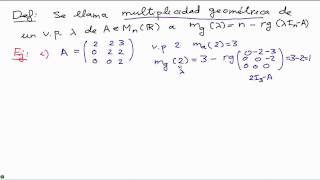 Def: Se llama multiplicidad geométrica de
un v.p λ de A∈Mn(ℝ) a mg(λ) = n - rg(λIn-A)
Ej: c) A = (2 2 3 v.p 2 ma(2)=3
0 2 2
0 0 2) mg(2) = 3 - rg(0 -2 -3 = 3-2=1
0 0 -2
0 0 0)
λ 2I3-A